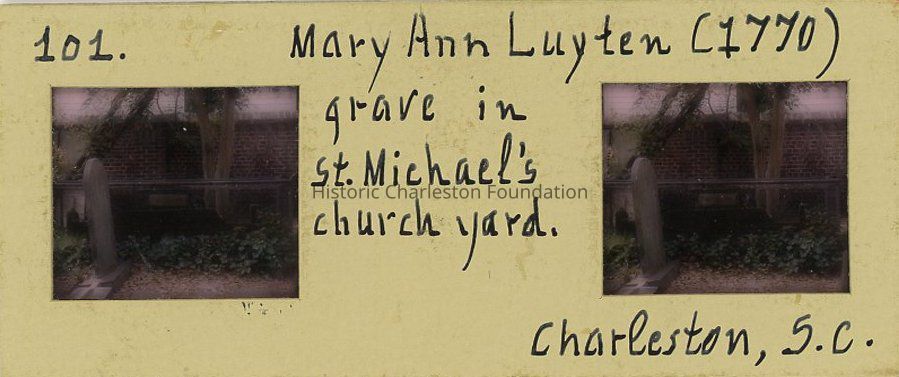 101.
Mary Ann Luyten (1770)
grave in
st. Michael's
Historic Charleston Foundation
church yard.
Charleston, S.C.